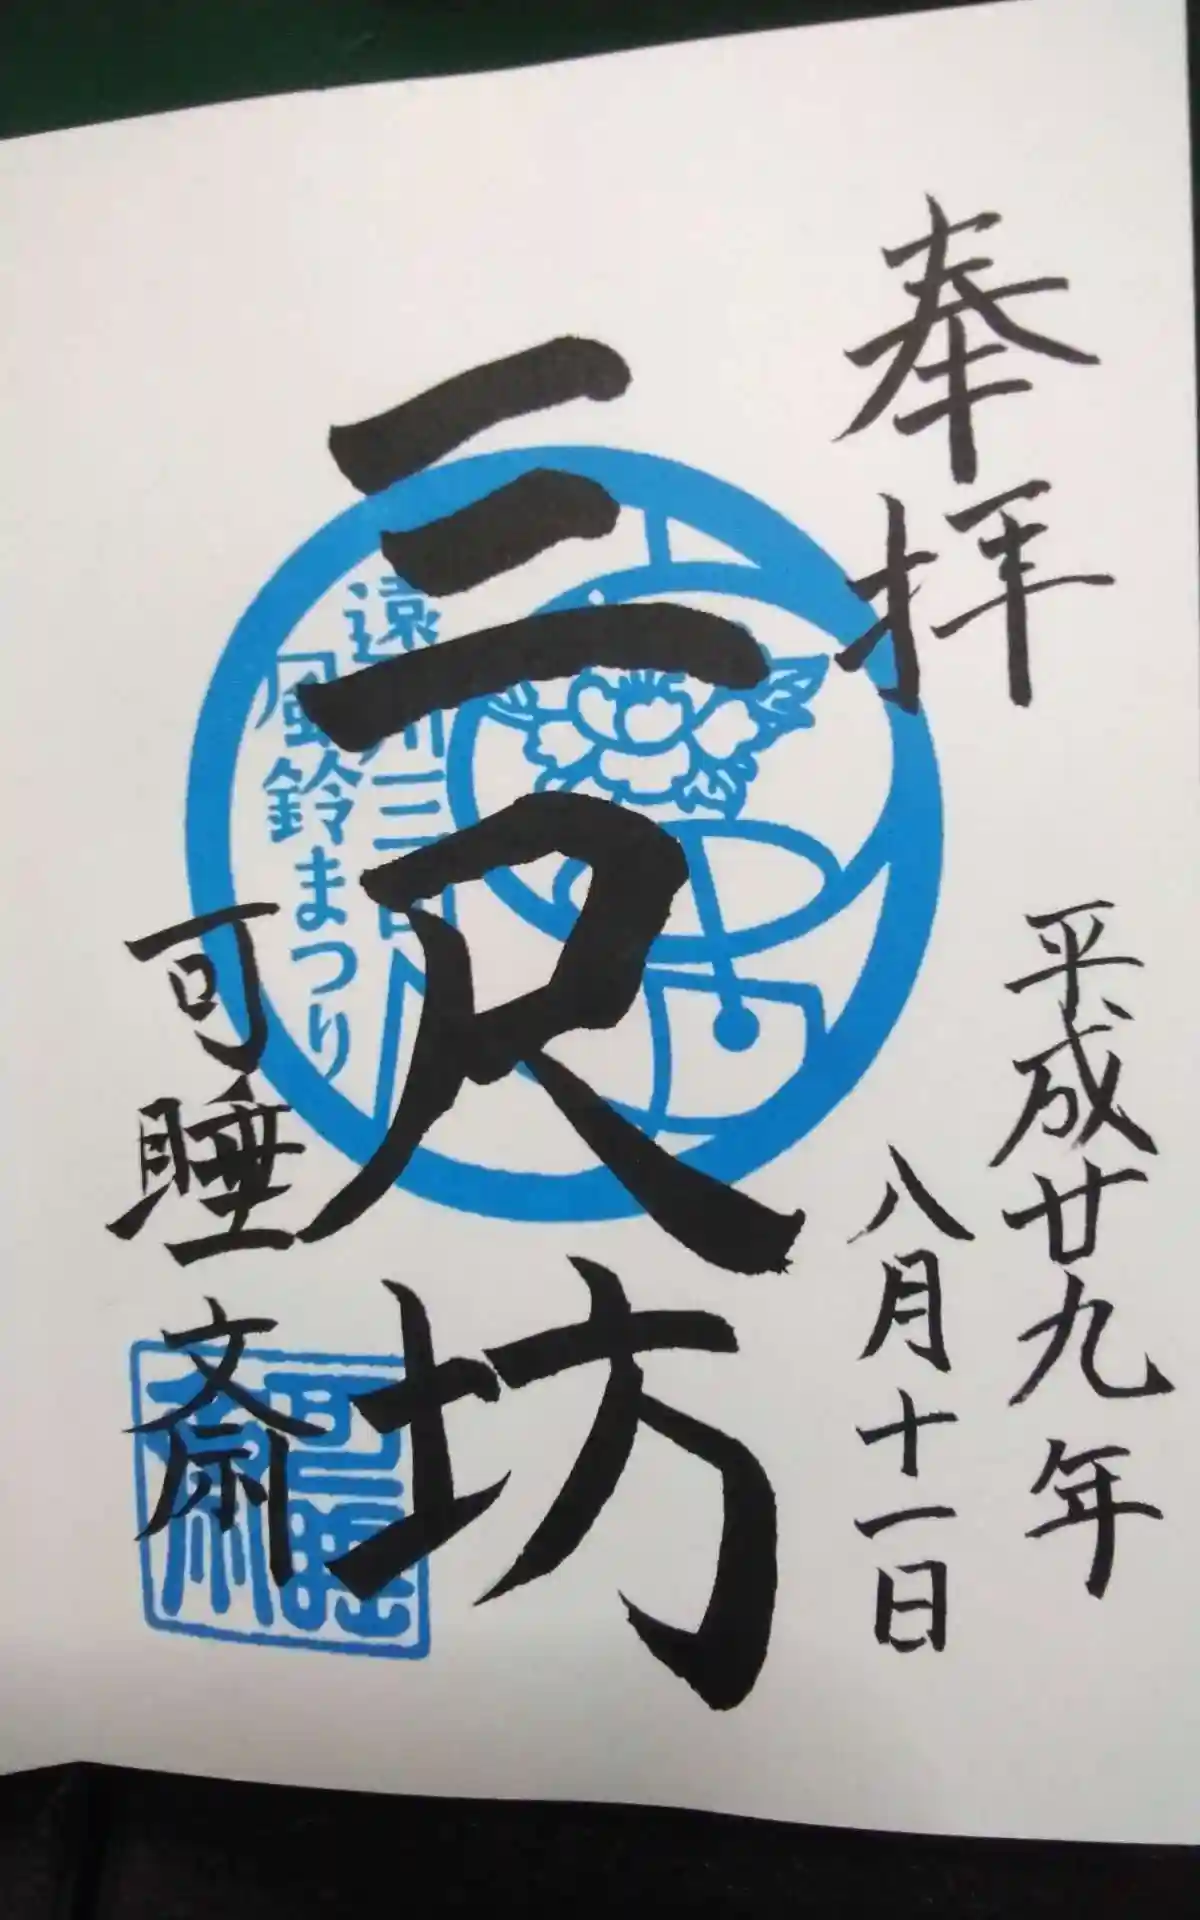 奉拝
平成廿九年
八月十一日
三尺坊
遠州三山
風鈴まつり
可睡斎
可睡
斎